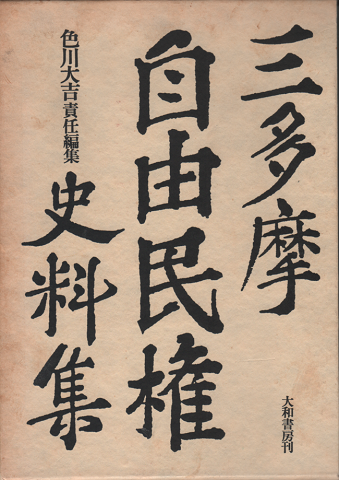 三多摩
自由民権
史料集
色川大吉責任編集
大和書房刊